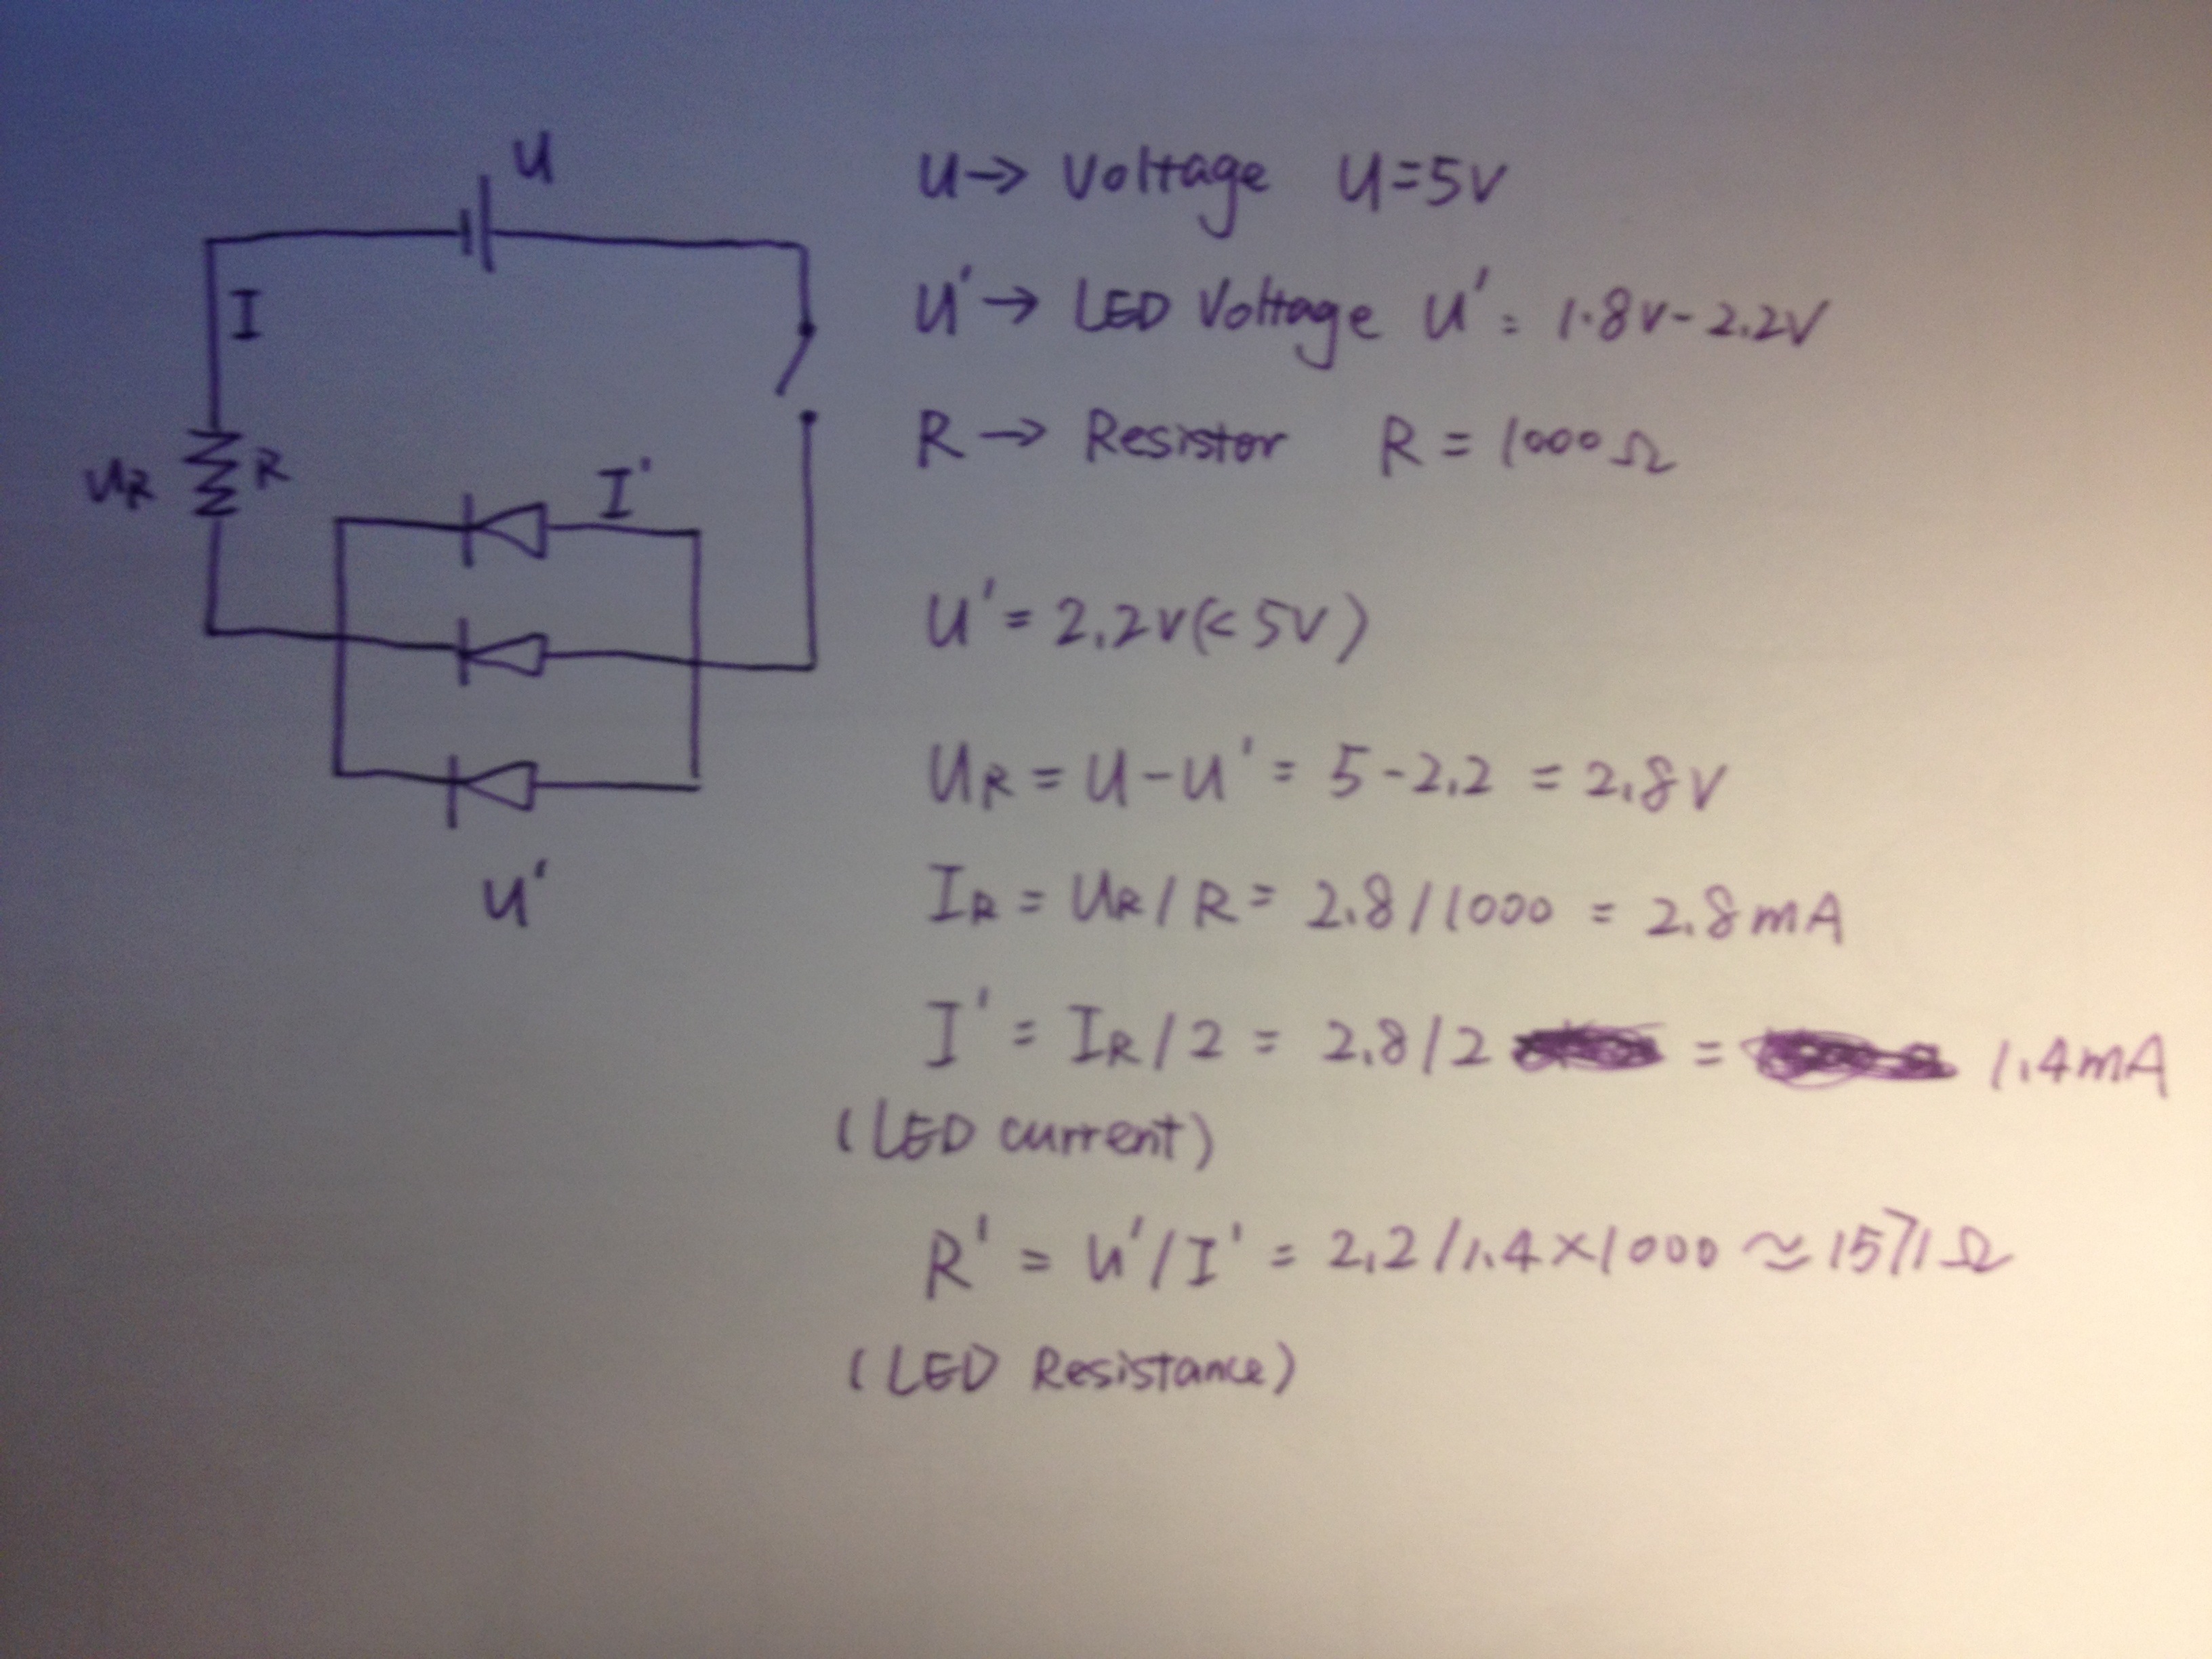 U
I
UR
R
I'
U'
U→ Voltage U=5V
U'→ LED Voltage U' = 1.8V-2.2V
R → Resistor R = 1000Ω
U' = 2.2V(<5V)
UR = U-U' = 5-2.2 = 2.8V
IR = UR/R = 2.8/1000 = 2.8mA
I' = IR/2 = 2.8/2 = 1.4mA
(LED current)
R' = U'/I' = 2.2/1.4×1000 ≈ 1571Ω
(LED Resistance)